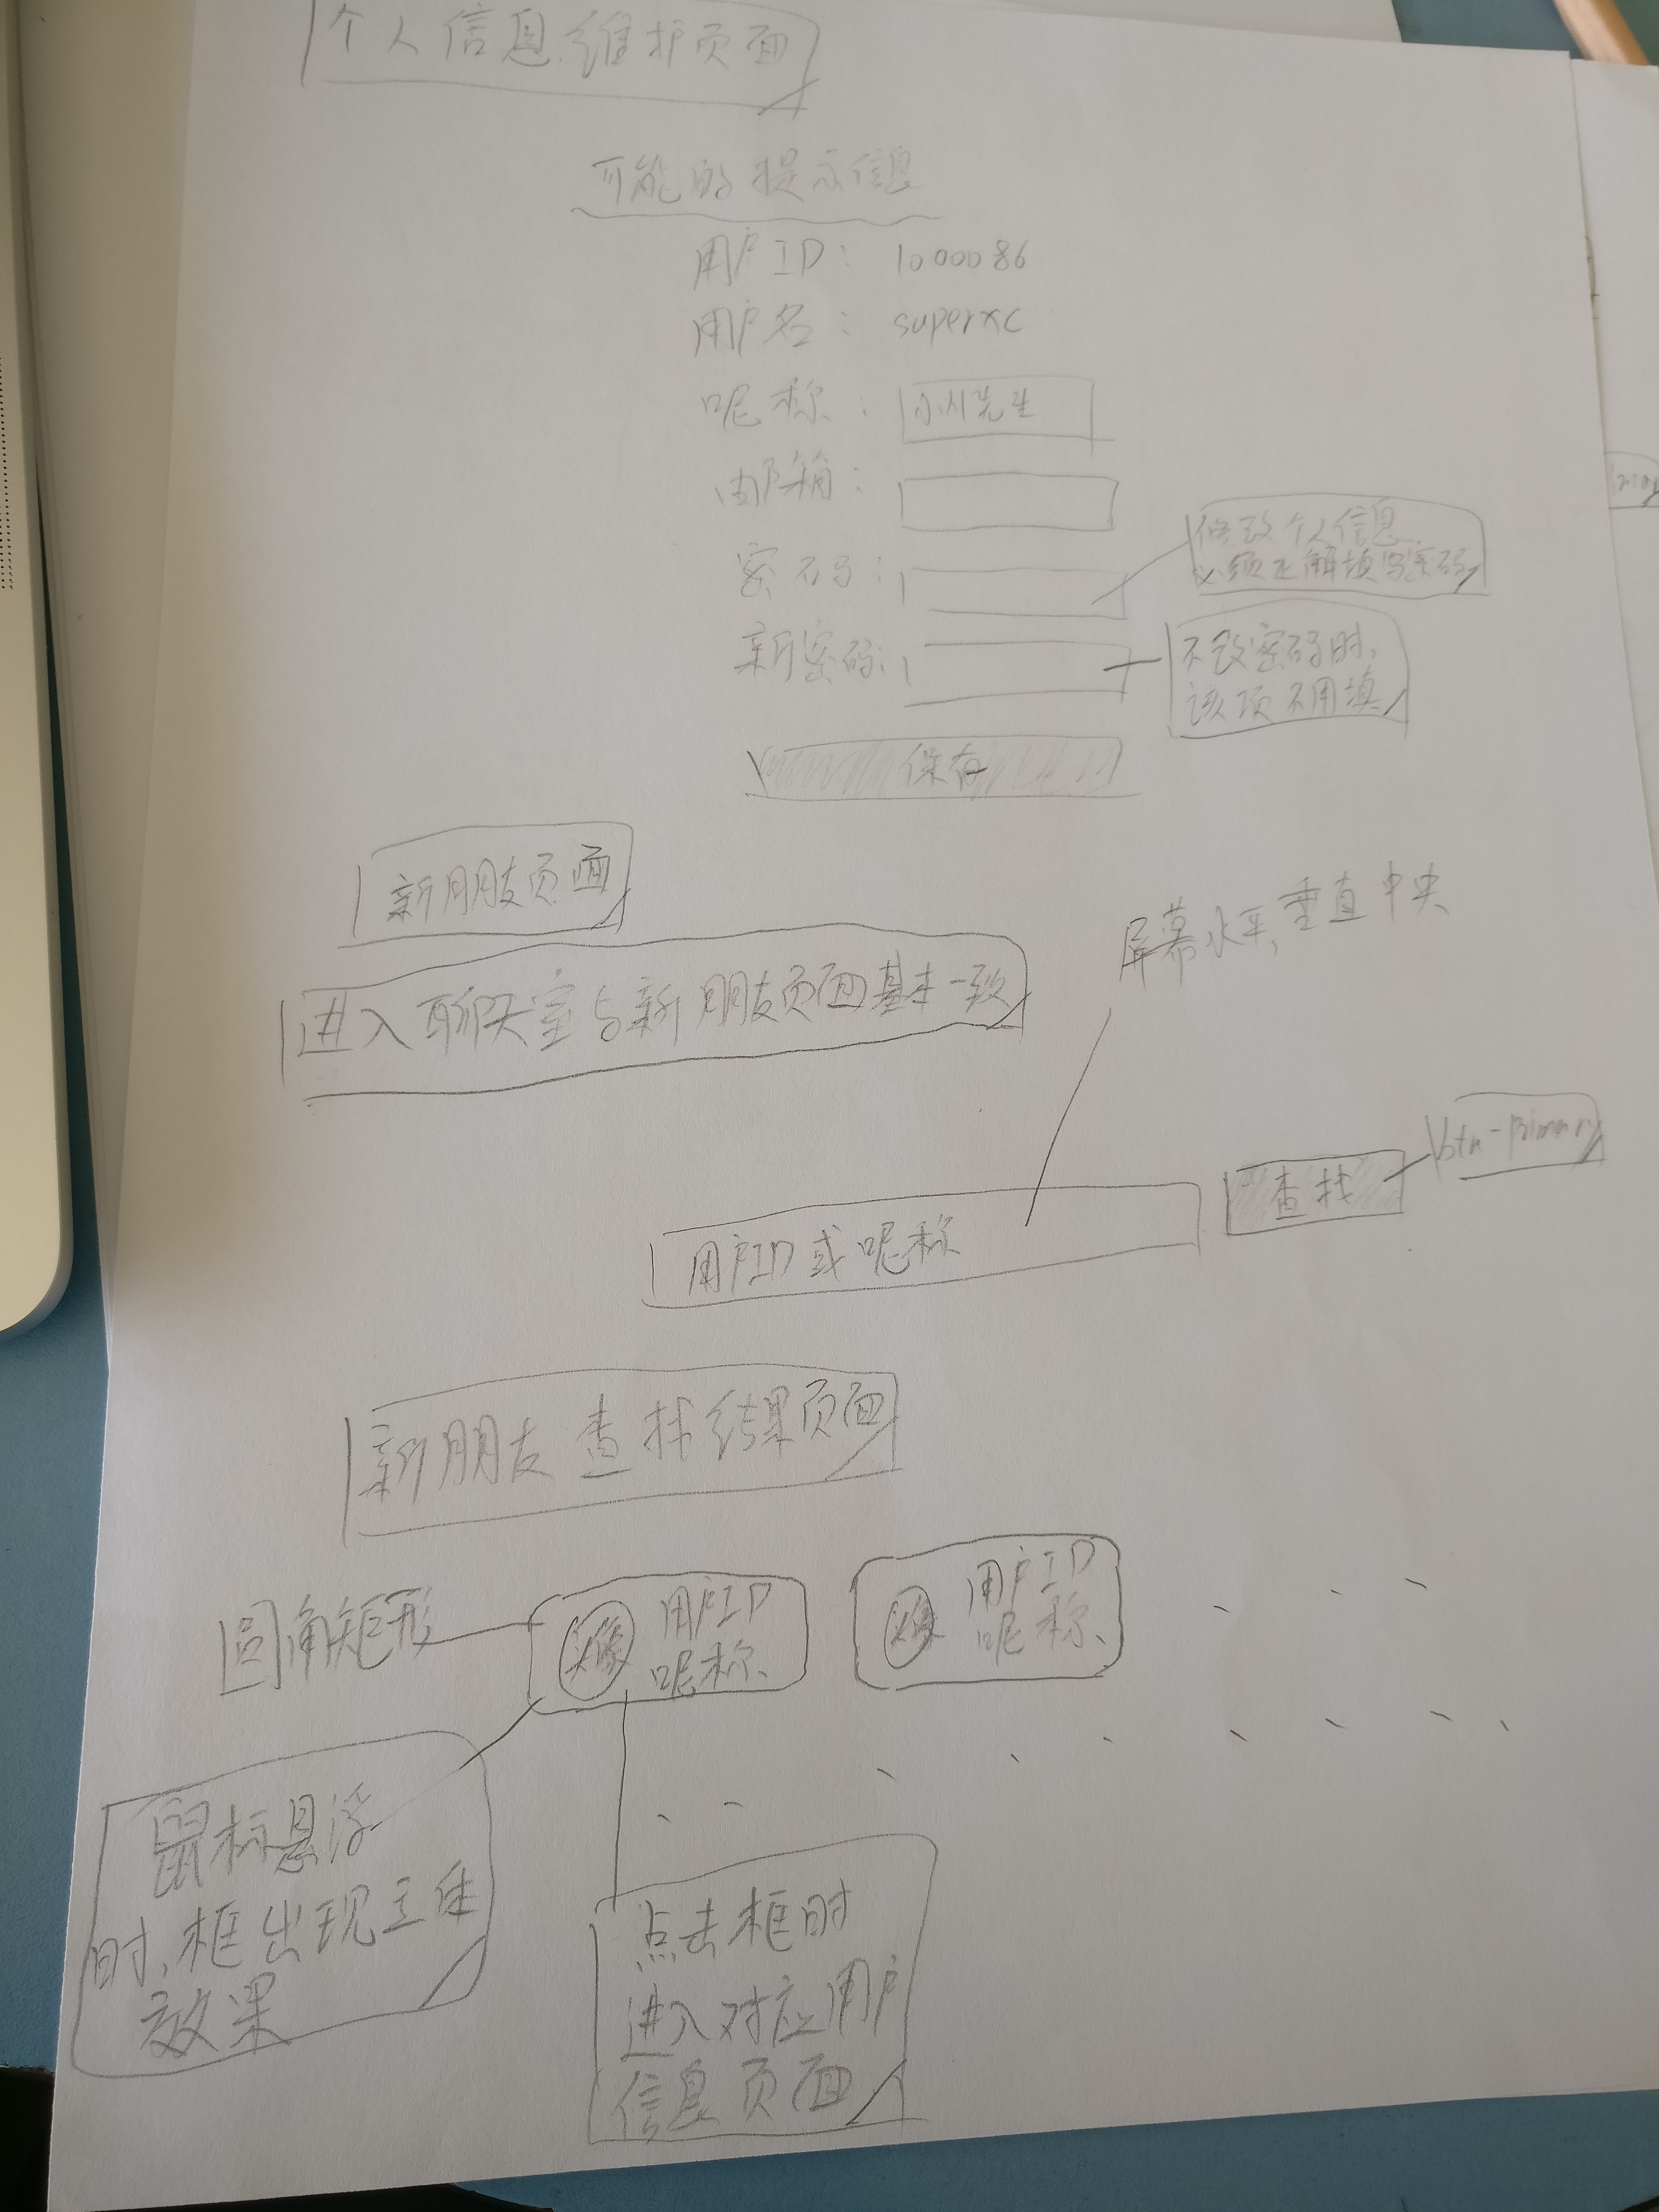 个人信息维护页面
可能的提示信息
用户ID： 1000086
用户名： superxc
昵称： 小川先生
邮箱：
密码：
修改个人信息
必须正解填写密码
新密码：
不改密码时，
该项不用填
保存
新朋友页面
屏幕水平，垂直中央
进入聊天室与新朋友页面基本一致
用户ID或昵称
查找
btn-primary
新朋友查找结果页面
圆角矩形
头像
用户ID
昵称
头像
用户ID
昵称
鼠标悬浮
时，框出现立体
效果
点击框时
进入对应用户
信息页面